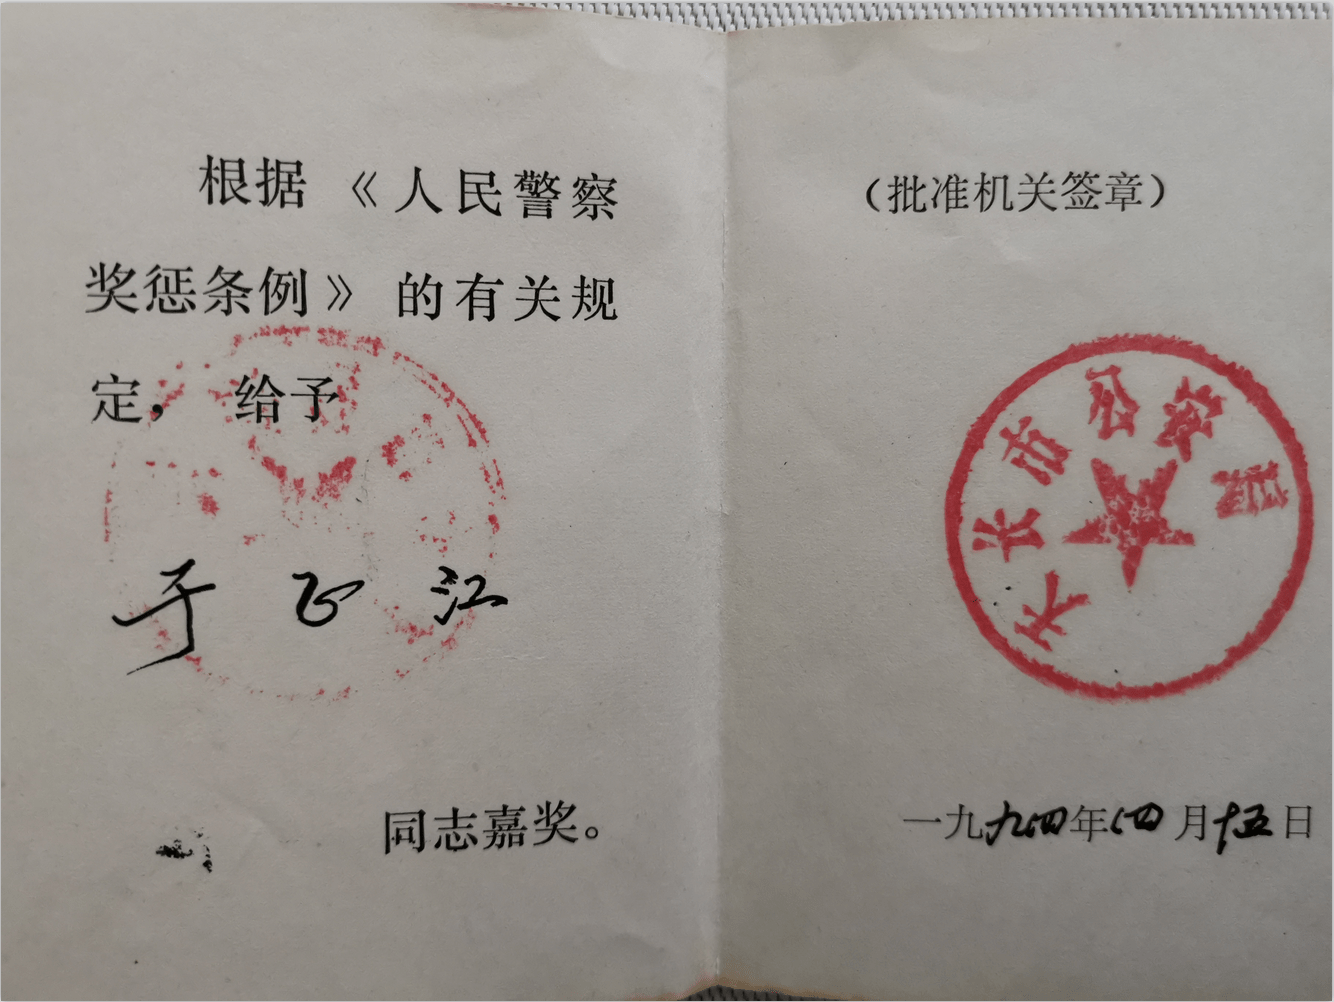 根据《人民警察
奖惩条例》的有关规
定， 给予
于正江
同志嘉奖。
（批准机关签章）
天长市公安局
一九九四年四月十五日